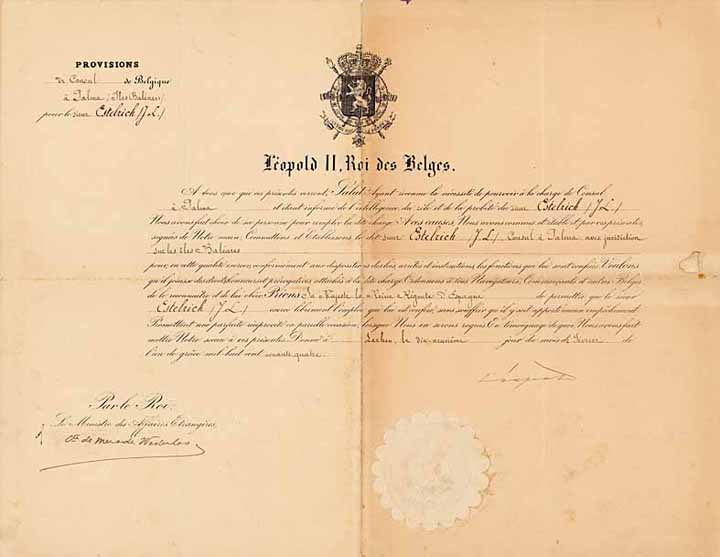 PROVISIONS
de Consul de Belgique
à Palma (Iles Baléares)
pour le sieur Estelrich (J. L.)
Léopold II, Roi des Belges.
A tous ceux que ces présentes verront, Salut. Ayant reconnu la nécessité de pourvoir à la charge de Consul
à Palma et étant informé de l'intelligence, du zèle et de la probité du sieur Estelrich (J. L.)
Nous avons fait choix de sa personne pour remplir la dite charge. A ces causes, Nous avons nommé et établi et par ces présentes
signées de Notre main, Commettons et Etablissons le dit sieur Estelrich (J. L.) Consul à Palma avec juridiction
sur les îles Baléares
pour, en cette qualité exercer, conformément aux dispositions des lois, arrêtés et instructions, les fonctions qui lui sont confiées. Voulons
qu'il jouisse des droits, honneurs et prérogatives attachés à la dite charge. Ordonnons à tous Navigateurs, Commerçants et autres Belges
de le reconnaître et de lui obéir. Prions Sa Majesté la Reine Régente d'Espagne de permettre que le sieur
Estelrich (J. L.) exerce librement l'emploi qui lui est confié, sans souffrir qu'il y soit apporté aucun empêchement.
Promettant une parfaite réciprocité en pareille occasion, lorsque Nous en serons requis. En témoignage de quoi Nous avons fait
mettre Notre sceau à ces présentes. Donné à Laeken, le dix-neuvième jour du mois de Février de
l'an de grâce mil huit cent nonante quatre.
Léopold
Par le Roi:
Le Ministre des Affaires Etrangères,
Cte de Merode Westerloo